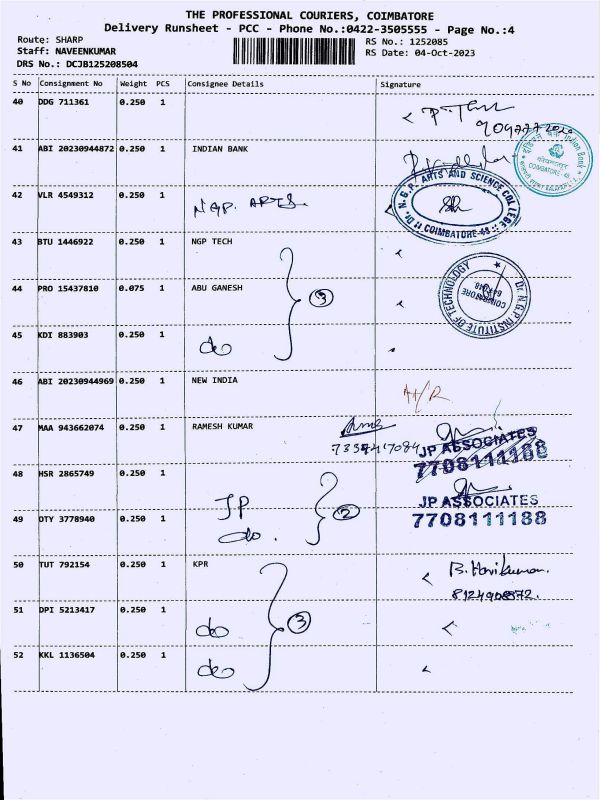 THE PROFESSIONAL COURIERS, COIMBATORE
Delivery Runsheet - PCC - Phone No.:0422-3505555 - Page No.:4
Route: SHARP
RS No.: 1252085
Staff: NAVEENKUMAR
RS Date: 04-Oct-2023
DRS No.: DCJB125208504
S No Consignment No Weight PCS Consignee Details Signature
40 DDG 711361 0.250 1
41 ABI 20230944872 0.250 1 INDIAN BANK
Indian Bank
COIMBATORE - 48
42 VLR 4549312 0.250 1 NGP. ARTS.
Dr. N.G.P. ARTS AND SCIENCE COLLEGE
COIMBATORE-48
43 BTU 1446922 0.250 1 NGP TECH
44 PRO 15437810 0.075 1 ABU GANESH
3
Dr. N.G.P INSTITUTE OF TECHNOLOGY
COIMBATORE
641 048
45 KDI 883903 0.250 1 do
46 ABI 20230944969 0.250 1 NEW INDIA
47 MAA 943662074 0.250 1 RAMESH KUMAR
JP ASSOCIATES
7708111188
48 HSR 2865749 0.250 1 JP
2
JP ASSOCIATES
7708111188
49 OTY 3778940 0.250 1 do.
50 TUT 792154 0.250 1 KPR B. Harikumar.
8124908572.
51 DPI 5213417 0.250 1 do 3
52 KKL 1136504 0.250 1 do